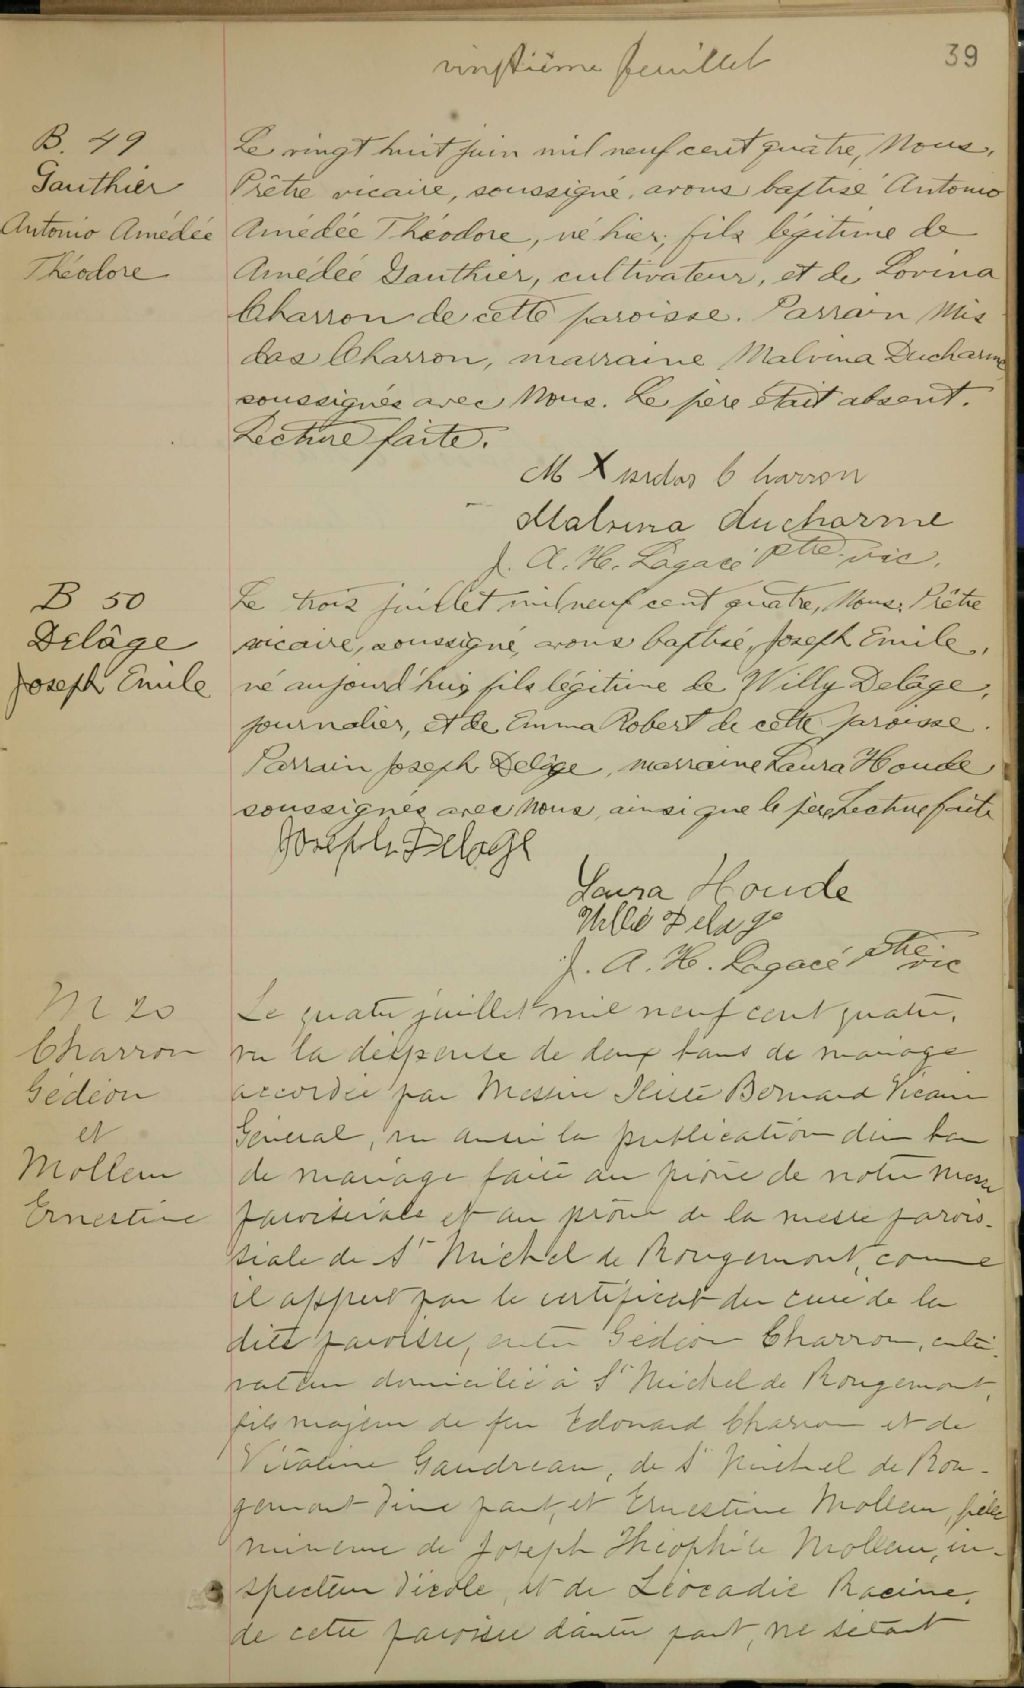 vingtième feuillet
39
B. 49
Gauthier
Antonio Amédée
Théodore
Le vingt huit juin mil neuf cent quatre, Nous,
Prêtre vicaire, soussigné, avons baptisé Antonio
Amédée Théodore, né hier, fils légitime de
Amédée Gauthier, cultivateur, et de Lovina
Charron de cette paroisse. Parrain Mis
das Charron, marraine Malvina Ducharme
soussignés avec Nous. Le père était absent.
Lecture faite.
M X Charron
Malvina Ducharme
J. A. H. Lagacé ptre. vic.
B 50
Delâge
Joseph Emile
Le trois juillet mil neuf cent quatre, Nous, Prêtre
vicaire, soussigné, avons baptisé, Joseph Emile,
né aujourd'hui, fils légitime de Willy Delâge,
journalier, et de Emma Robert de cette paroisse.
Parrain Joseph Delâge, marraine Laura Houde
soussignés avec Nous, ainsi que le père, Lecture faite
Joseph Delage
Laura Houde
Willie Delage
J. A. H. Lagacé ptre vic
M 20
Charron
Gédéon
et
Molleur
Ernestine
Le quatre juillet mil neuf cent quatre,
vu la dispense de deux bans de mariage
accordée par Messire Bernard Vicaire
Général, vu aussi la publication d'un ban
de mariage faite au prône de notre messe
paroissiale et au prône de la messe parois-
siale de St Michel de Rougemont, comme
il appert par le certificat du curé de la
dite paroisse, entre Gédéon Charron, culti-
vateur domicilié à St Michel de Rougemont,
fils majeur de feu Edouard Charron et de
Vitaline Gaudreau, de St Michel de Rou-
gemont d'une part, et Ernestine Molleur, fille
mineure de Joseph Théophile Molleur, in-
specteur d'école, et de Léocadie Racine,
de cette paroisse d'autre part, ne s'étant